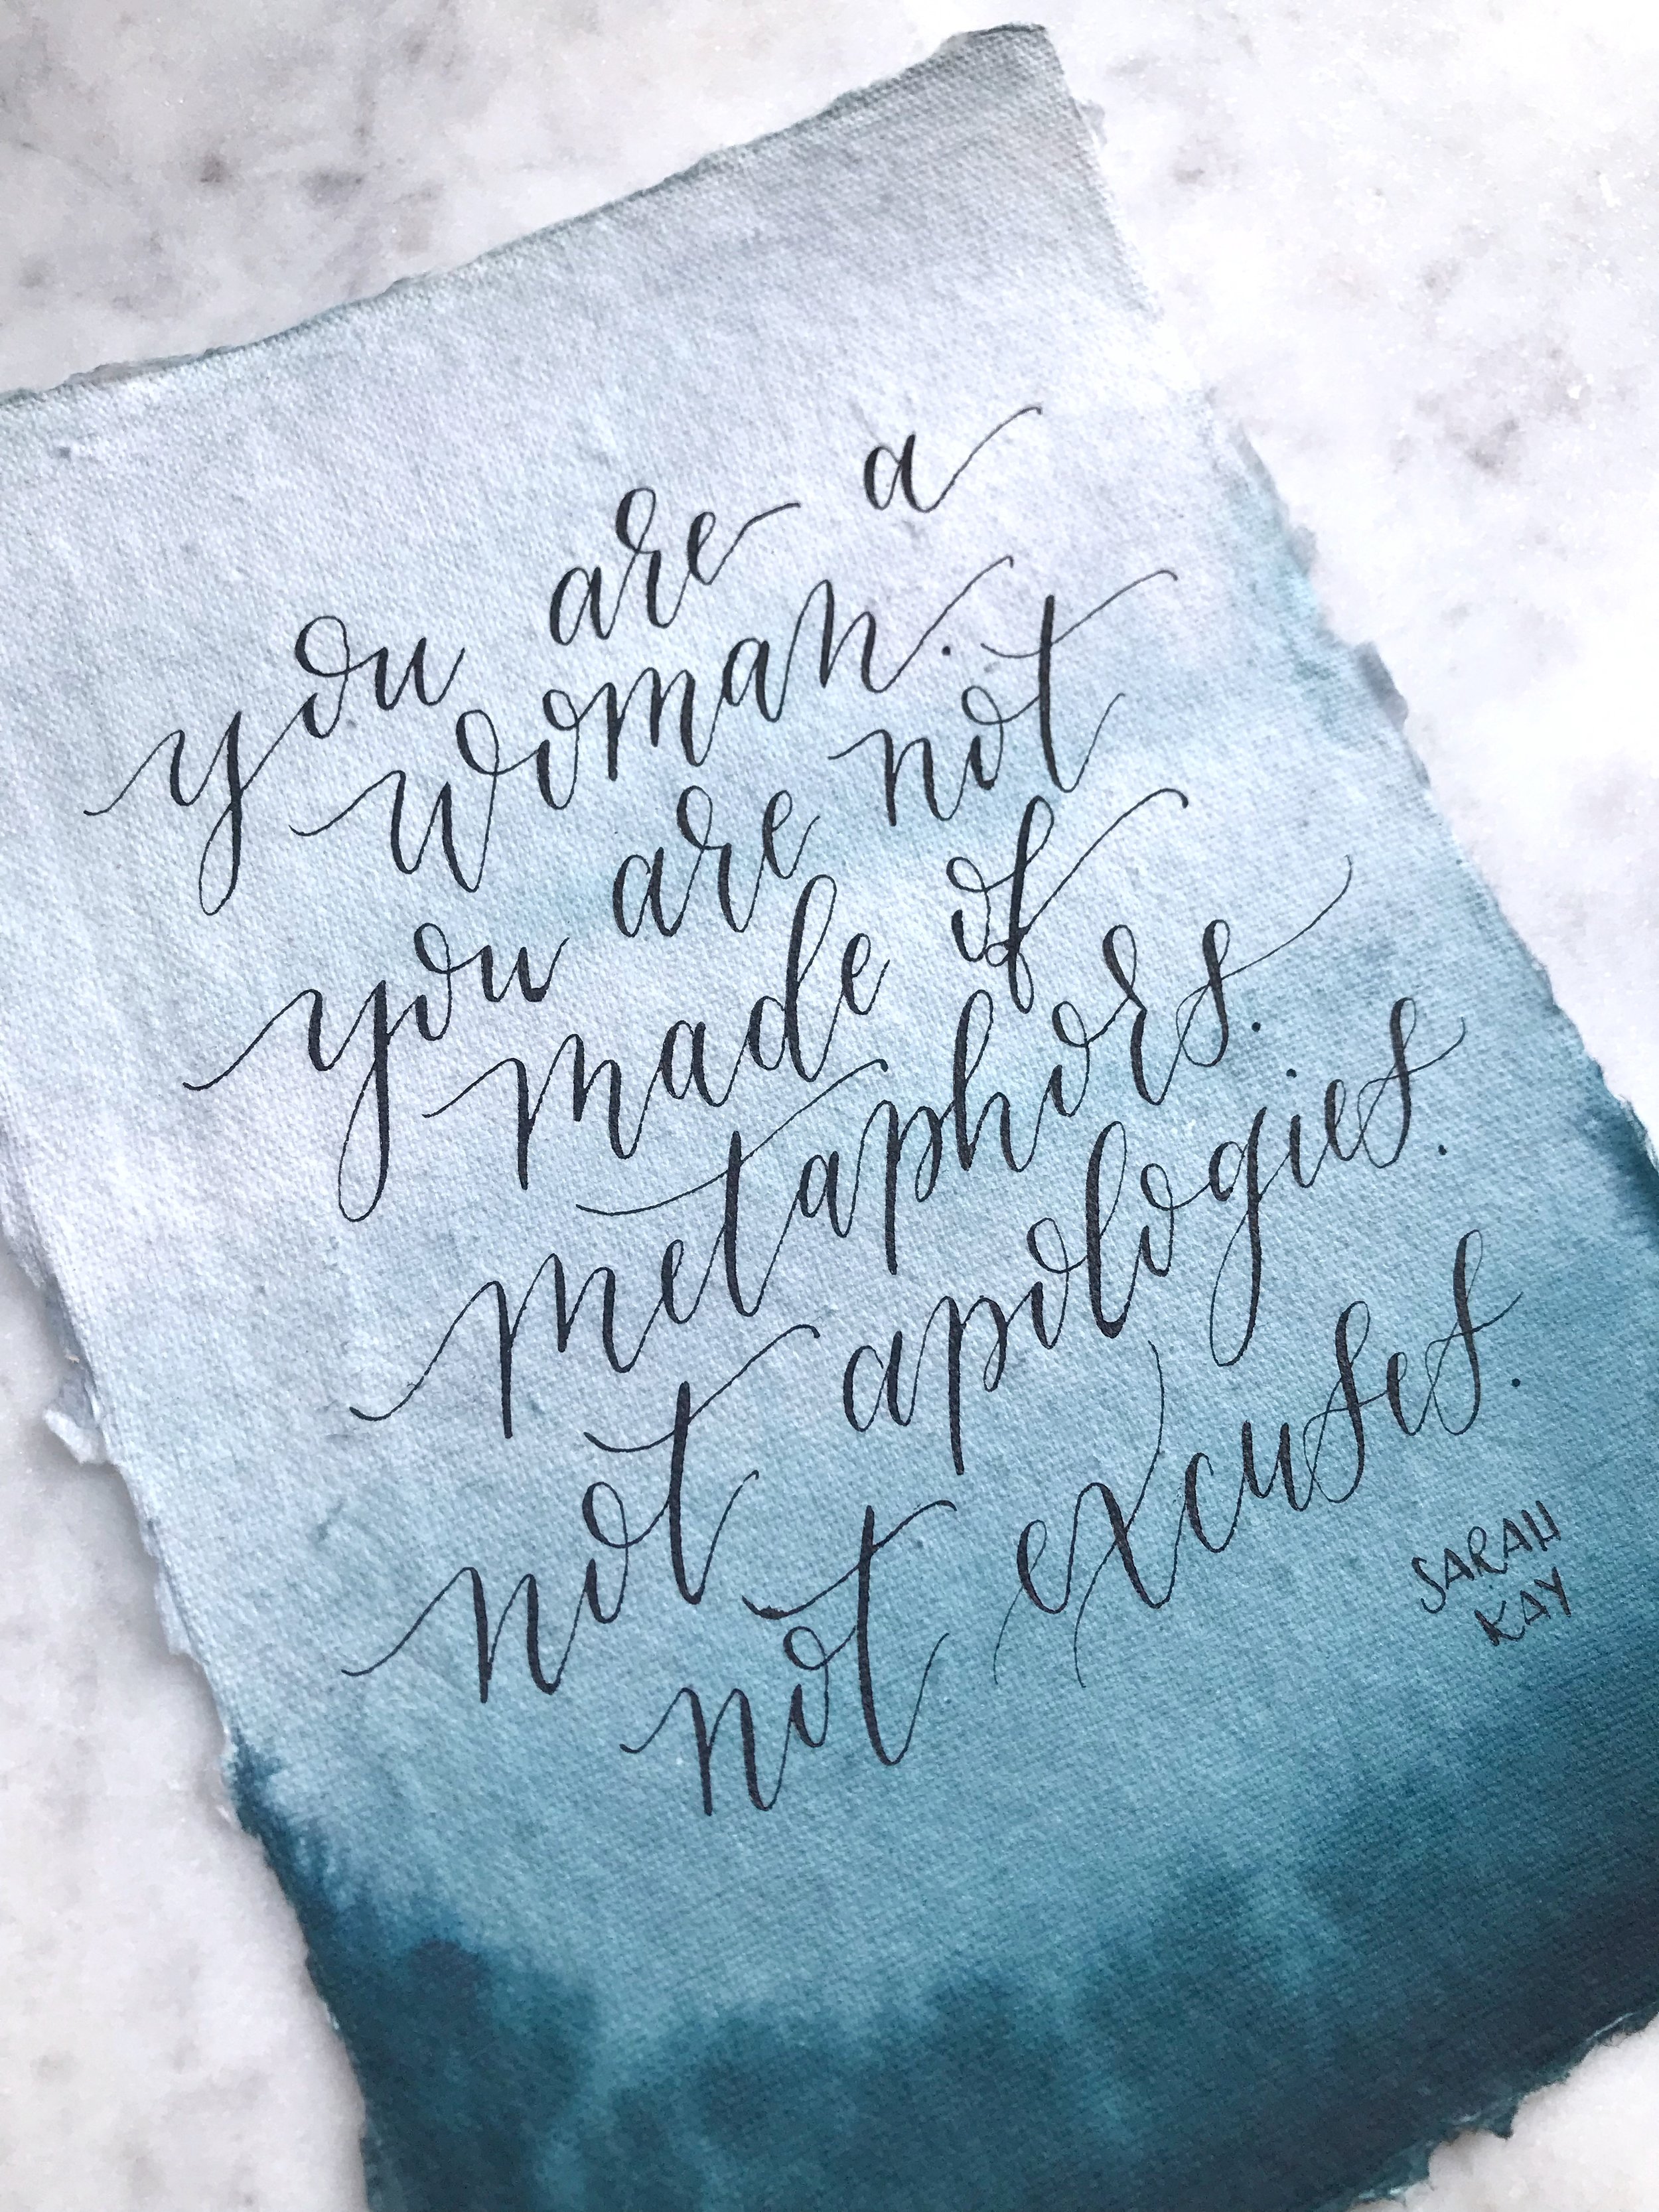 you are a
woman.
you are not
made of
metaphors.
not apologies.
not excuses.
SARAH
KAY